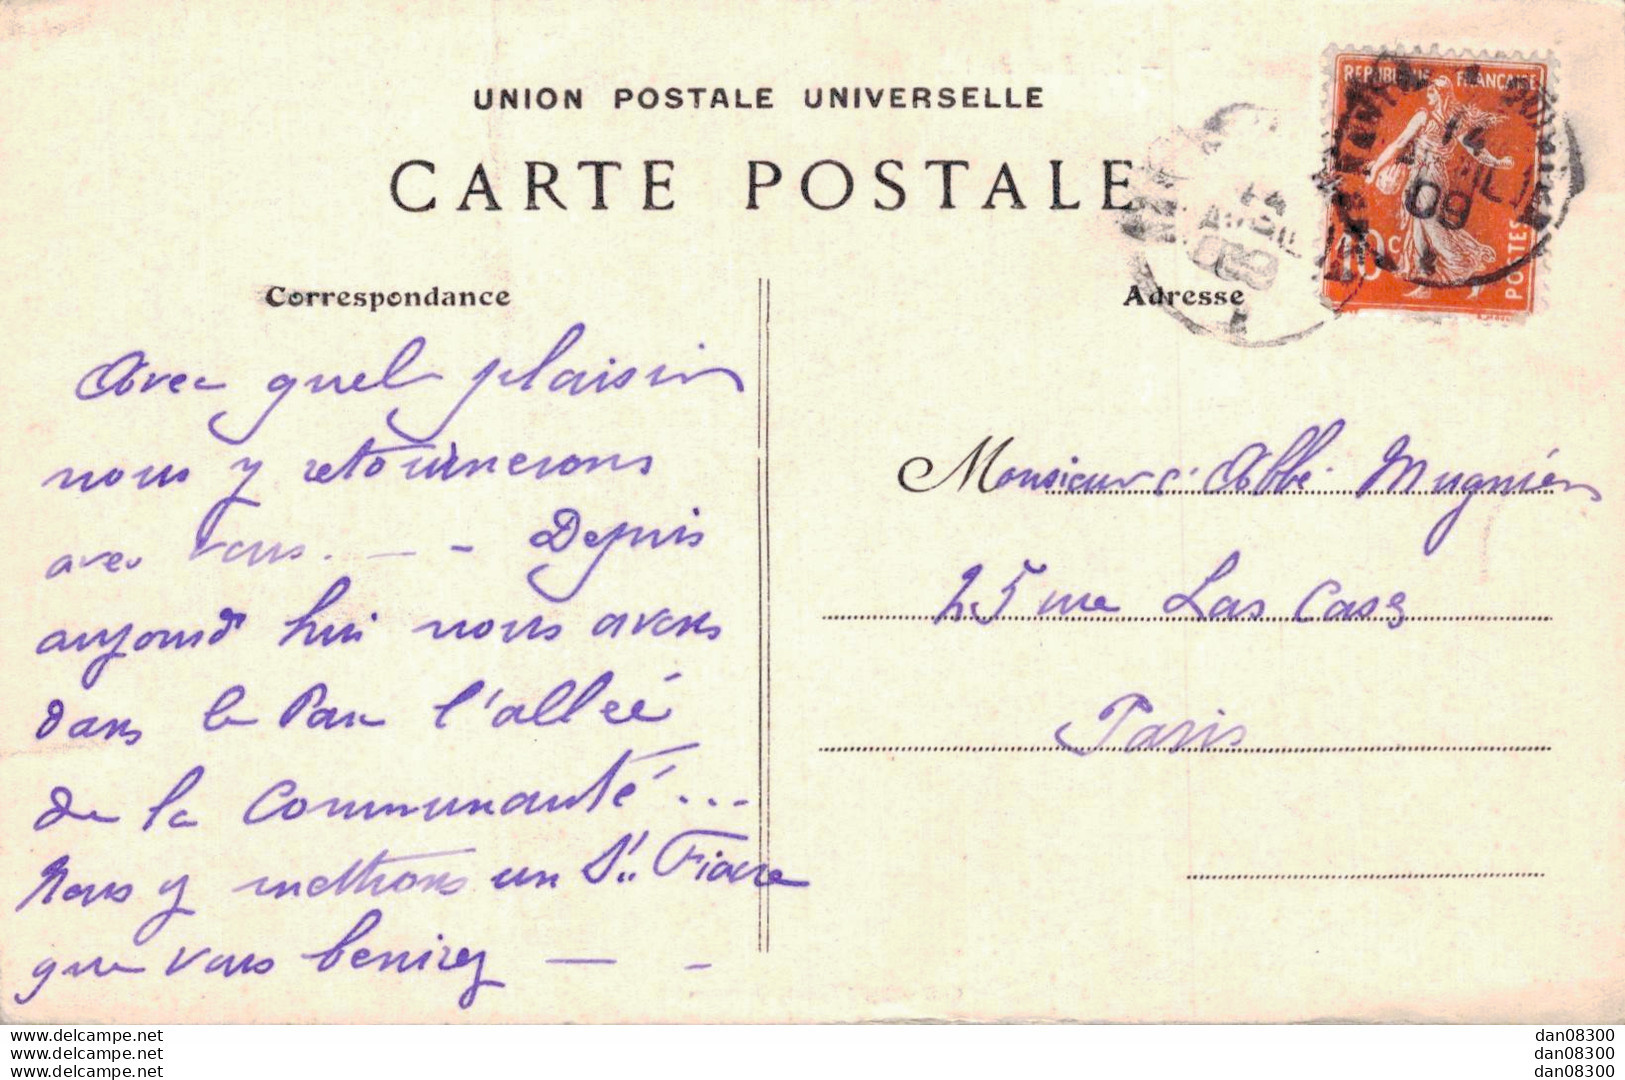 UNION POSTALE UNIVERSELLE
CARTE POSTALE
REPUBLIQUE FRANÇAISE
10c
POSTES
14
AVRIL
09
14
AVRIL
09
Correspondance
Adresse
Avec quel plaisir
nous y retournerons
avec vous. — - Depuis
aujourd'hui nous avons
dans le Parc l'allée
de la Communauté...
Nous y mettrons un St. Fiacre
que vous bénirez — -
Monsieur l'Abbé Mugnier
25 rue Las Cases
Paris
www.delcampe.net
www.delcampe.net
www.delcampe.net
dan08300
dan08300
dan08300